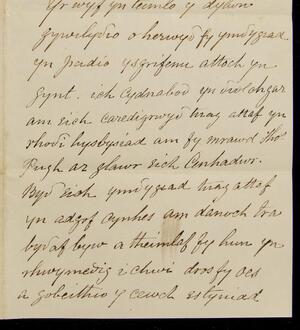 Yr wyf yn teimlo y dylswn
gywilyddio o herwydd fy ymddygiad
yn peidio ysgrifenu attoch yn
gynt. eich cydnabod yn ddiolchgar
am eich caredigrwydd tuag attaf yn
rhoddi hysbysiad am fy mrawd Tho.
Pugh ar glawr eich Cenhadwr.
Bydd eich ymddygiad tuag attaf
yn adgof cynhes am danoch tra
byddaf byw a theimlaf fy hun yn
rhwymedig i chwi dros fy oes
a gobeithio y cewch estyniad